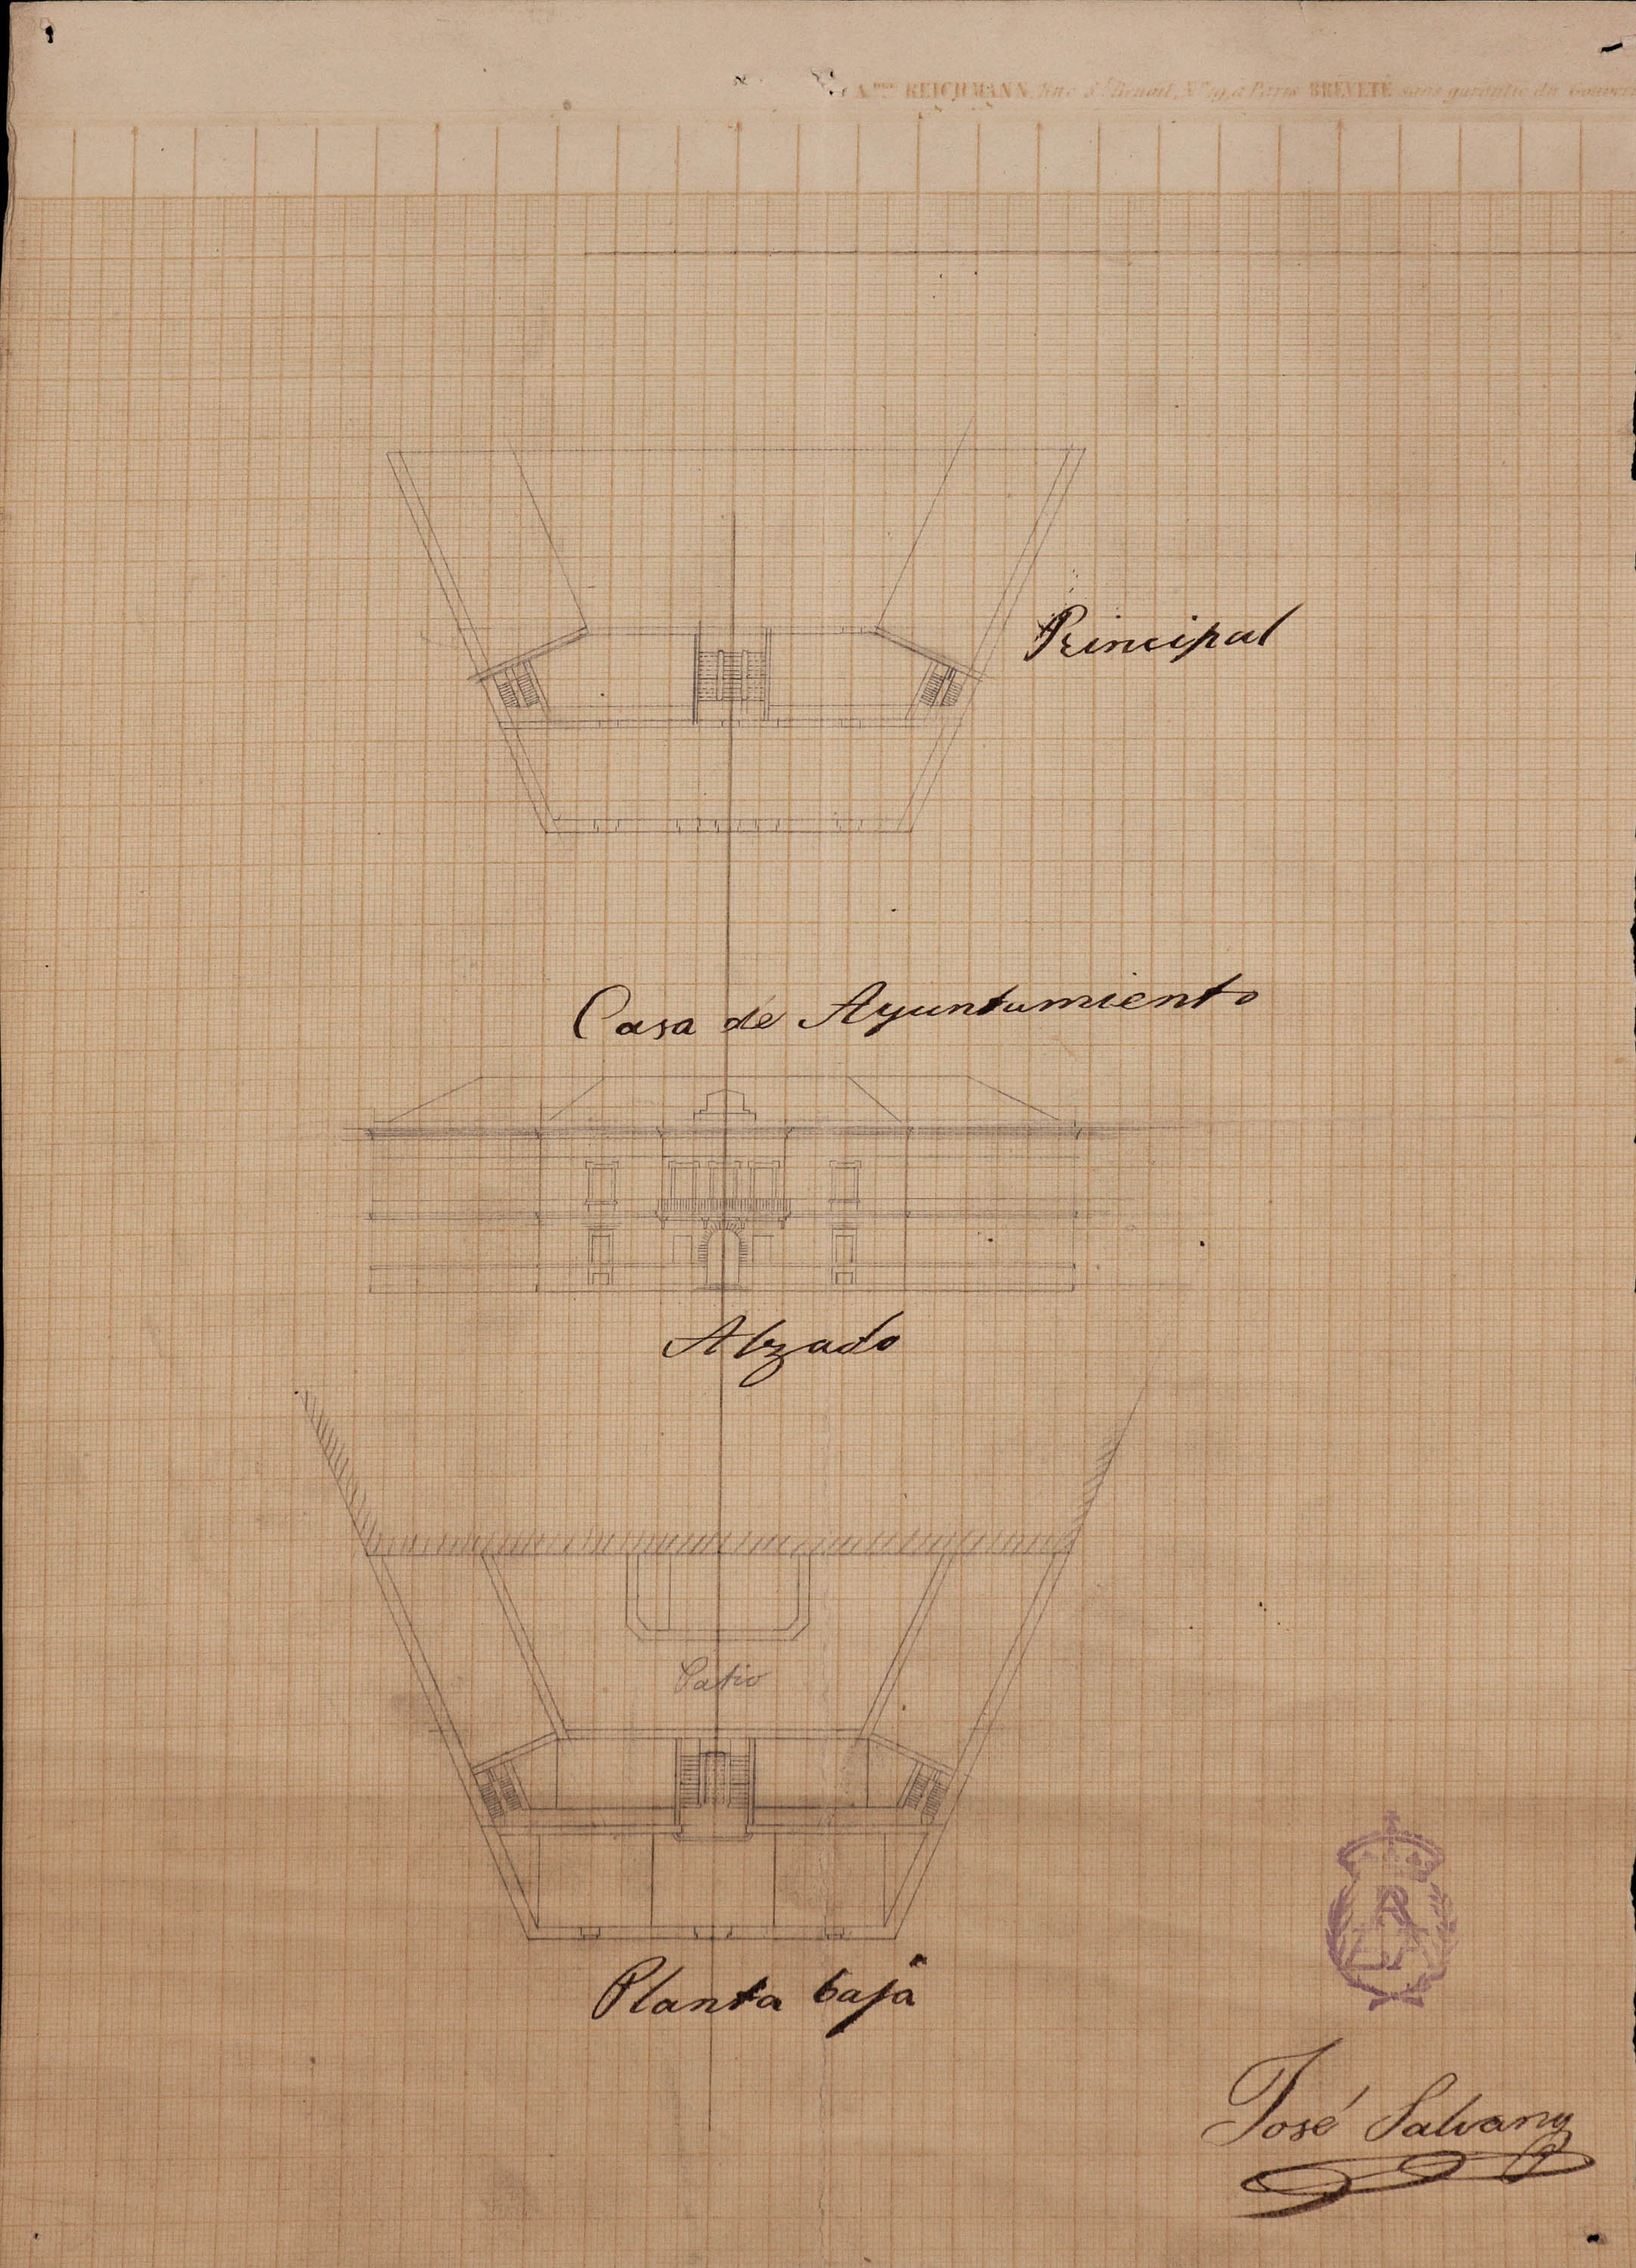 REICHMANN, Rue St Benoit, No 19, à Paris BREVETÉ sans garantie du Gouver
Principal
Casa de Ayuntamiento
Alzado
Patio
Planta baja
José Salvany